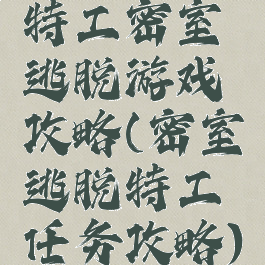 特工密室
逃脱游戏
攻略(密室
逃脱特工
任务攻略)